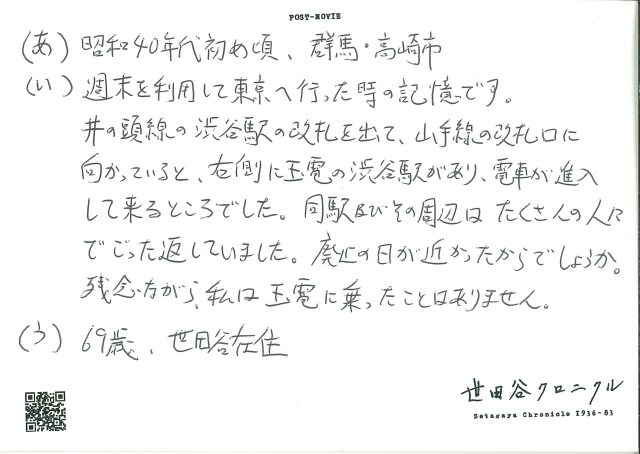 POST-MOVIE
(あ) 昭和40年代初め頃、群馬・高崎市
(い) 週末を利用して東京へ行った時の記憶です。
井の頭線の渋谷駅の改札を出て、山手線の改札口に
向かっていると、右側に玉電の渋谷駅があり、電車が進入
して来るところでした。同駅及びその周辺はたくさんの人に
でごった返していました。廃止の日が近かったからでしょうか。
残念ながら、私は玉電に乗ったことはありません。
(う) 69歳、世田谷在住
世田谷クロニクル
Setagaya Chronicle 1936-83